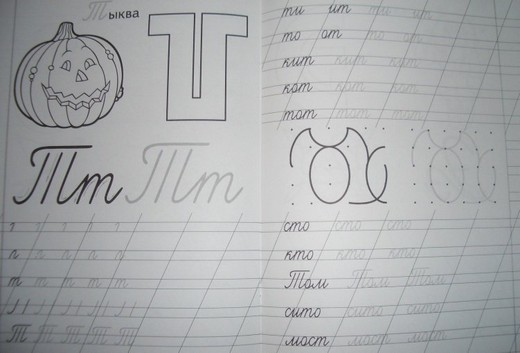 Тыква
Т
Тт Тт
т т т т т
Т Т Т Т Т
ти ит ти ит
то от то от
кит кит кит
кот кот кот
тот тот тот
сто сто сто
кто кто кто
Том Том Том
сито сито сито
мост мост мост